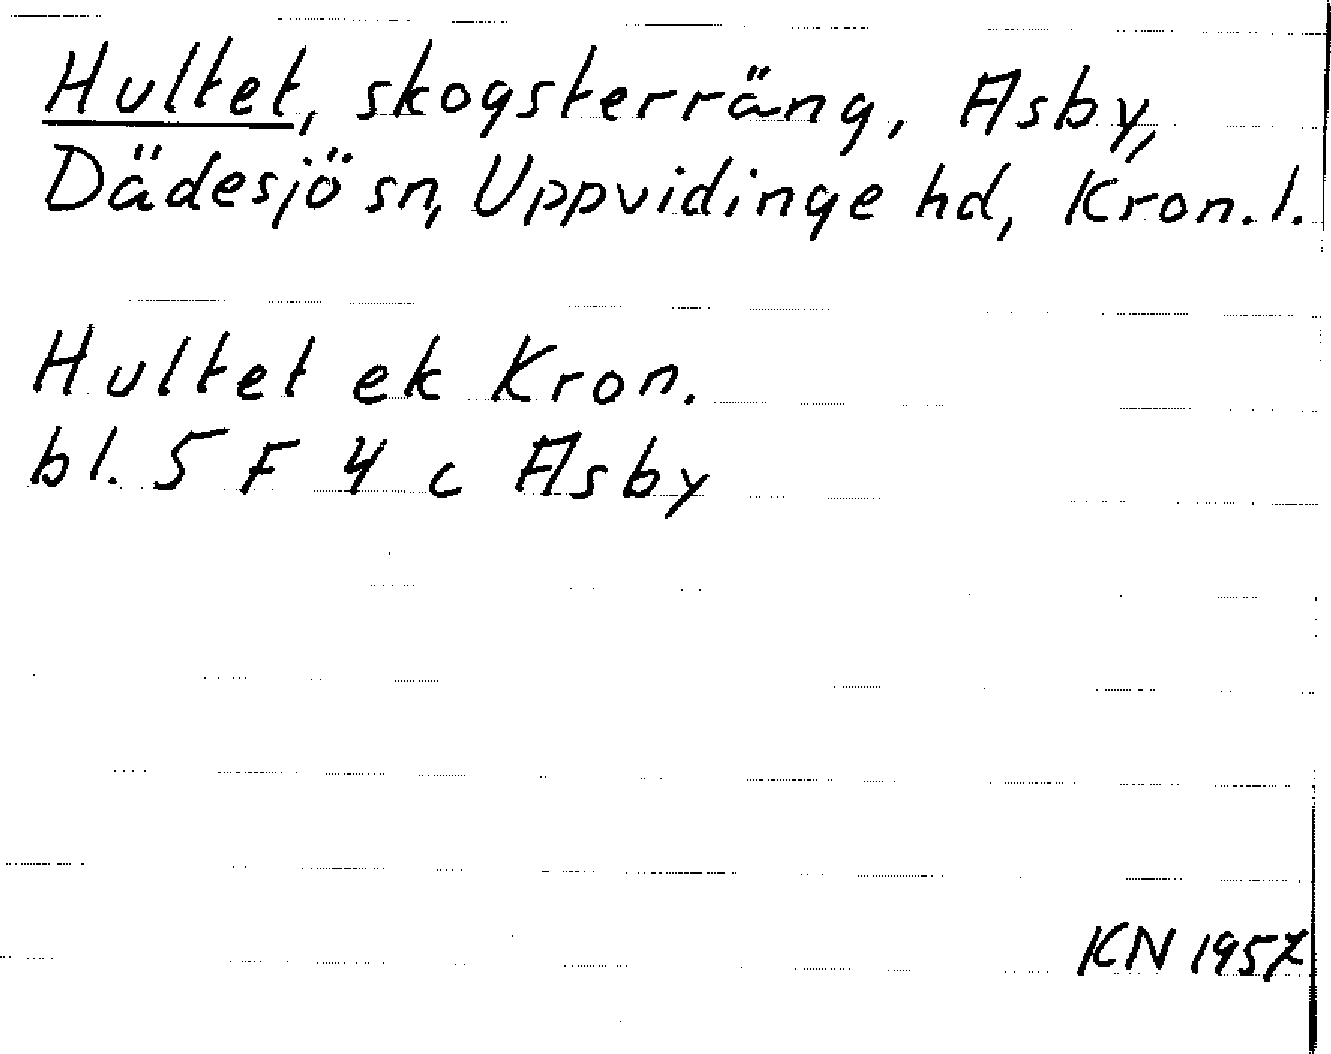 Hultet, skogsterräng, Asby,
Dädesjö sn, Uppvidinge hd, Kron. l.
Hultet ek Kron.
bl. 5 F 4 c Asby
KN 1957